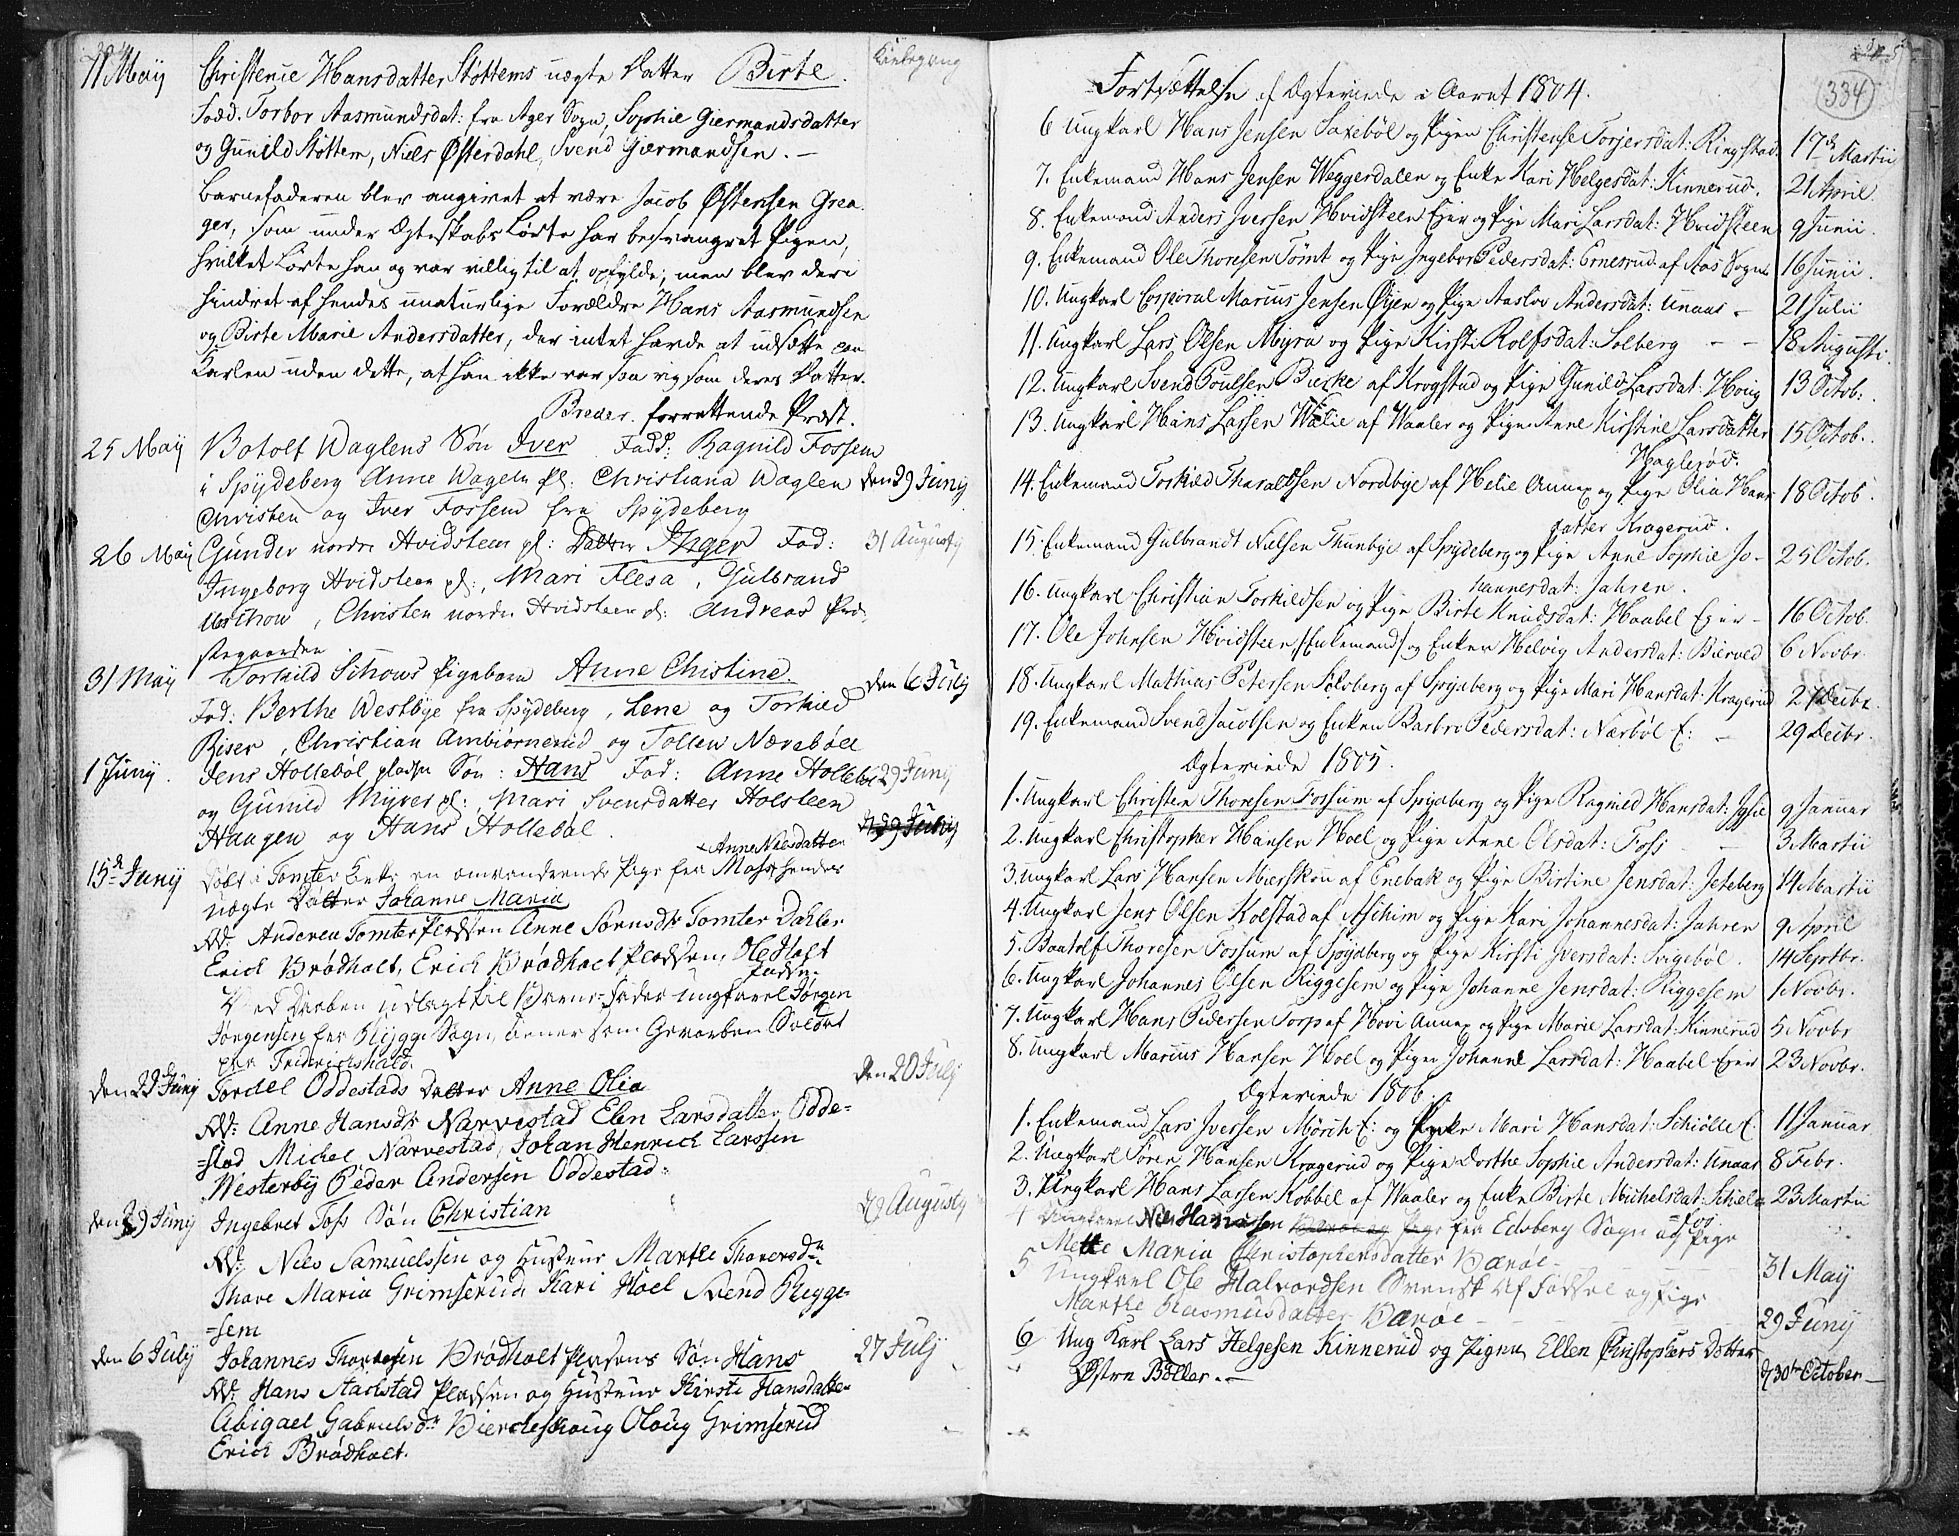 11 Maij Christense Hansdatter Støttems uægte Datter Birte. Kirkegang
Fadd. Torbor Aasmundsdat: fra Ager Sogn, Sophie Giermandsdatter
og Gunild Støttem, Niels Østerdahl, Svend Giermandsen. —
Barnefaderen blev angivet at være Jacob Østensen Grea-
ger, som under Ægteskabs Løvte har besvangret Pigen,
hvilket Løvte han og var villig til at opfylde; men blev deri
hindret af hendes unaturlige Forældre Hans Aasmundsen
og Birte Marie Andersdatter, der intet havde at udsætte paa
Karlen uden dette, at han ikke var saa rig som deres Datter.
Breder. forrettende Præst.
25 Maij Botolf Waglens Søn Iver Fadd: Ragnild Fossem
i Spydeberg Anne Wageln pl: Christiana Waglen den 29 Junij
Christen og Iver Fossem fra Spydeberg
26 Maij Gunder nordre Hvidsteen pl: Datter Inger Fad: 31 Augusty
Ingeborg Hvidsteen pl:, Mari Flesa, Gulbrand
Morthow, Christen nordre Hvidsteen pl: Andreas Præ-
stegaarden
31 Maij Torkild Schows Pigebarn Anne Chistine. den 6 Julij
Fad: Berthe Westbye fra Spydeberg, Lene og Torkild
Riser, Christian Ambiørnerud og Tollew Nærebøll
1 Junij. Jens Hollebøl pladsen Søn: Hans Fad: Anne Hollebøl 29 Junij
og Gunild Myrer pl:, Mari Svensdatter Holsteen
Haagen og Hans Hollebøl.
Anne Nielsdatter
15d Junij Døbt i Tomter Kirke en omvandrende Pige fra Moss hendes
uægte Datter Johanne Maria
Fad: Anderea Tomter Pladsen Anne Sørensdr Tomter Dahler
Erich Brødholt, Erich Brødholt Pladsen, Ole Haft
Pladsn.
Ved Daaben udlagt til Barne-fader ungkarl Jørgen
Jørgensen fra Rygge Sogn, tiener som Gevorben Soldat
paa Friderichshald.
den 22 Junij Tordel Oddestads Datter Anne Olia den 20 Julij
Fad: Anne Hansdr Narvestad Elen Larsdatter Odde-
=stad Michel Narvestad, Johan Henrich Larssen
Westerby Peder Andersen Oddestad.
den 29 Junij Ingebret Foss Søn Christian d 9 Augusty
Fad: Nils Samuelssen og Hustrue Marthe Thoresdr
Thore Maria Grimserud, Kari Hoel Svend Rigge-
=sem
den 6 Julij Johannes Thoresen Brødholt Pladsens Søn Hans 27 Julij
Fad: Hans Stachstad Pladsen og Hustrue Kirsti Hansdatter
Abigael Gabrielsdr Biercheshoug Oloug Grimserud
Erich Brødholt.
334
Fortsættelse af Ægteviede i Aaret 1804.
6 Ungkarl Hans Jensen Saxebøl og Pigen Christense Torjersdat: Ringstad. 17d Martii
7. Enkemand Hans Jensen Weggerdalen og Enke Kari Helgesdat: Kinnerud. 21 April.
8. Enkemand Anders Iversen Hvidsteen Eyer og Pige Mari Larsdat: Hvidsteen 9 Junii.
9. Enkemand Ole Thoresen Tomt og Pige Ingebor Pedersdat: Ernesrud af Aas Sogn 16 Junii.
10. Ungkarl Corporal Marius Jensen Øijen og Pige Aaslov Andersdat: Unaas - 21 Julii
11. Ungkarl Lars Olsen Myra og Pige Kirsti Rolfsdat: Solberg - - 18 Augusti.
12. Ungkarl Svend Poulsen Bierke af Krogstad og Pige Gunild Larsdat: Hovig 13 Octob:
13. Ungkarl Hans Larsen Wælie af Waaler og Pige Anne Kirstine Larsdatter 15 Octob.
Haglerød.
14. Enkemand Torkild Tharaldsen Nordbye af Helie Annex og Pige Olia Hans 18 Octob.
datter Kragerud.
15. Enkemand Gulbrandt Nielsen Thunbye af Spydeberg og Pige Anne Sophie Jo- 25 Octob.
hannesdat: Jahren.
16. Ungkarl Christian Torkildsen og Pige Birte Knudsdat: Haabel Eyer - 16 Octob.
17. Ole Johnsen Hvidsteen /Enkemand/ og Enken Helvig Andersdat: Biervod 6 Novbr.
18. Ungkarl Mathias Petersen Solsberg af Spydeberg og Pige Mari Hansdat: Kragerud 27 Decbr.
19. Enkemand Svend Jacobsen og Enken Barbro Pedersdat: Nærbøl E: - 29 Decbr.
Ægteviede 1805.
1. Ungkarl Christen Thoresen Fossum af Spydeberg og Pige Ragnild Hansdat: Igsie 9 Januar
2. Ungkarl Christopher Hansen Hoel og Pige Anne Olsdat: Foss - - 3 Martii
3. Ungkarl Lars Hansen Mierskou af Enebak og Pige Birtine Jensdat: Jeteberg 14 Martii
4. Ungkarl Jens Olsen Kolstad af Aschim og Pige Kari Johannesdat: Jahren 9 April
5. Baatolf Thoresen Fossum af Spydeberg og Pige Kirsti Iversdat: Svigebøl. 14 Septbr.
6. Ungkarl Johannes Olsen Riggesem og Pige Johanne Jensdat: Riggesem 1 Novbr.
7. Ungkarl Hans Pedersen Torp af Hovi Annex og Pige Marie Larsdat: Kinnerud 5 Novbr
8. Ungkarl Marius Hansen Hoel og Pigen Johanne Larsdat: Haabel Eyer 23 Novbr.
Ægteviede 1806.
1. Enkemand Lars Iversen Mørch E: og Enke Mari Hansdat: Schiølle E. 11 Januar
2. Ungkarl Søren Hansen Kragerud og Pige Dorthe Sophie Andersdat: Unaas 8 Febr.
3. Ungkarl Hans Larsen Kobbel af Waaler og Enke Birte Michelsdat: Schiele 23 Martii
4 Ungkarl Nils Hansen fra Edsberg Sogn og Pige
Mette Maria Christophersdatter Bærøe -
5 Ungkarl Ole Halvordsen Svensk af Fødsel og Pige 31 May
Marthe Rasmusdatter Bærøe - - - 29 Junij
6 Ung Karl Lars Helgesen Kinnerud og Pigen Ellen Christophers Dotter
Østre Bøller. - d 30te October